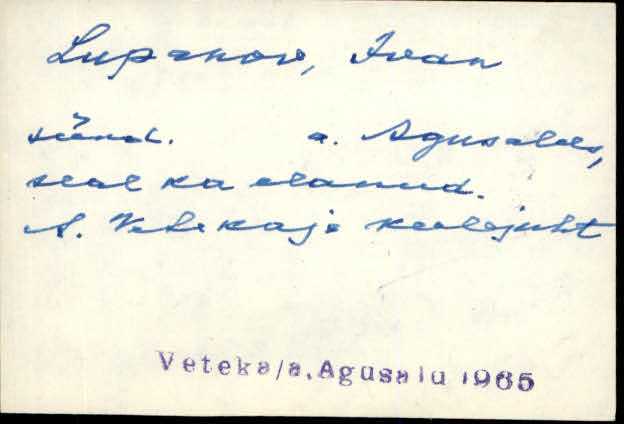 Lupanov, Ivan
sünd. a. Agusalus,
seal ka elanud.
A. Vetekaja keelejuht
Veteka/a, Agusalu 1965